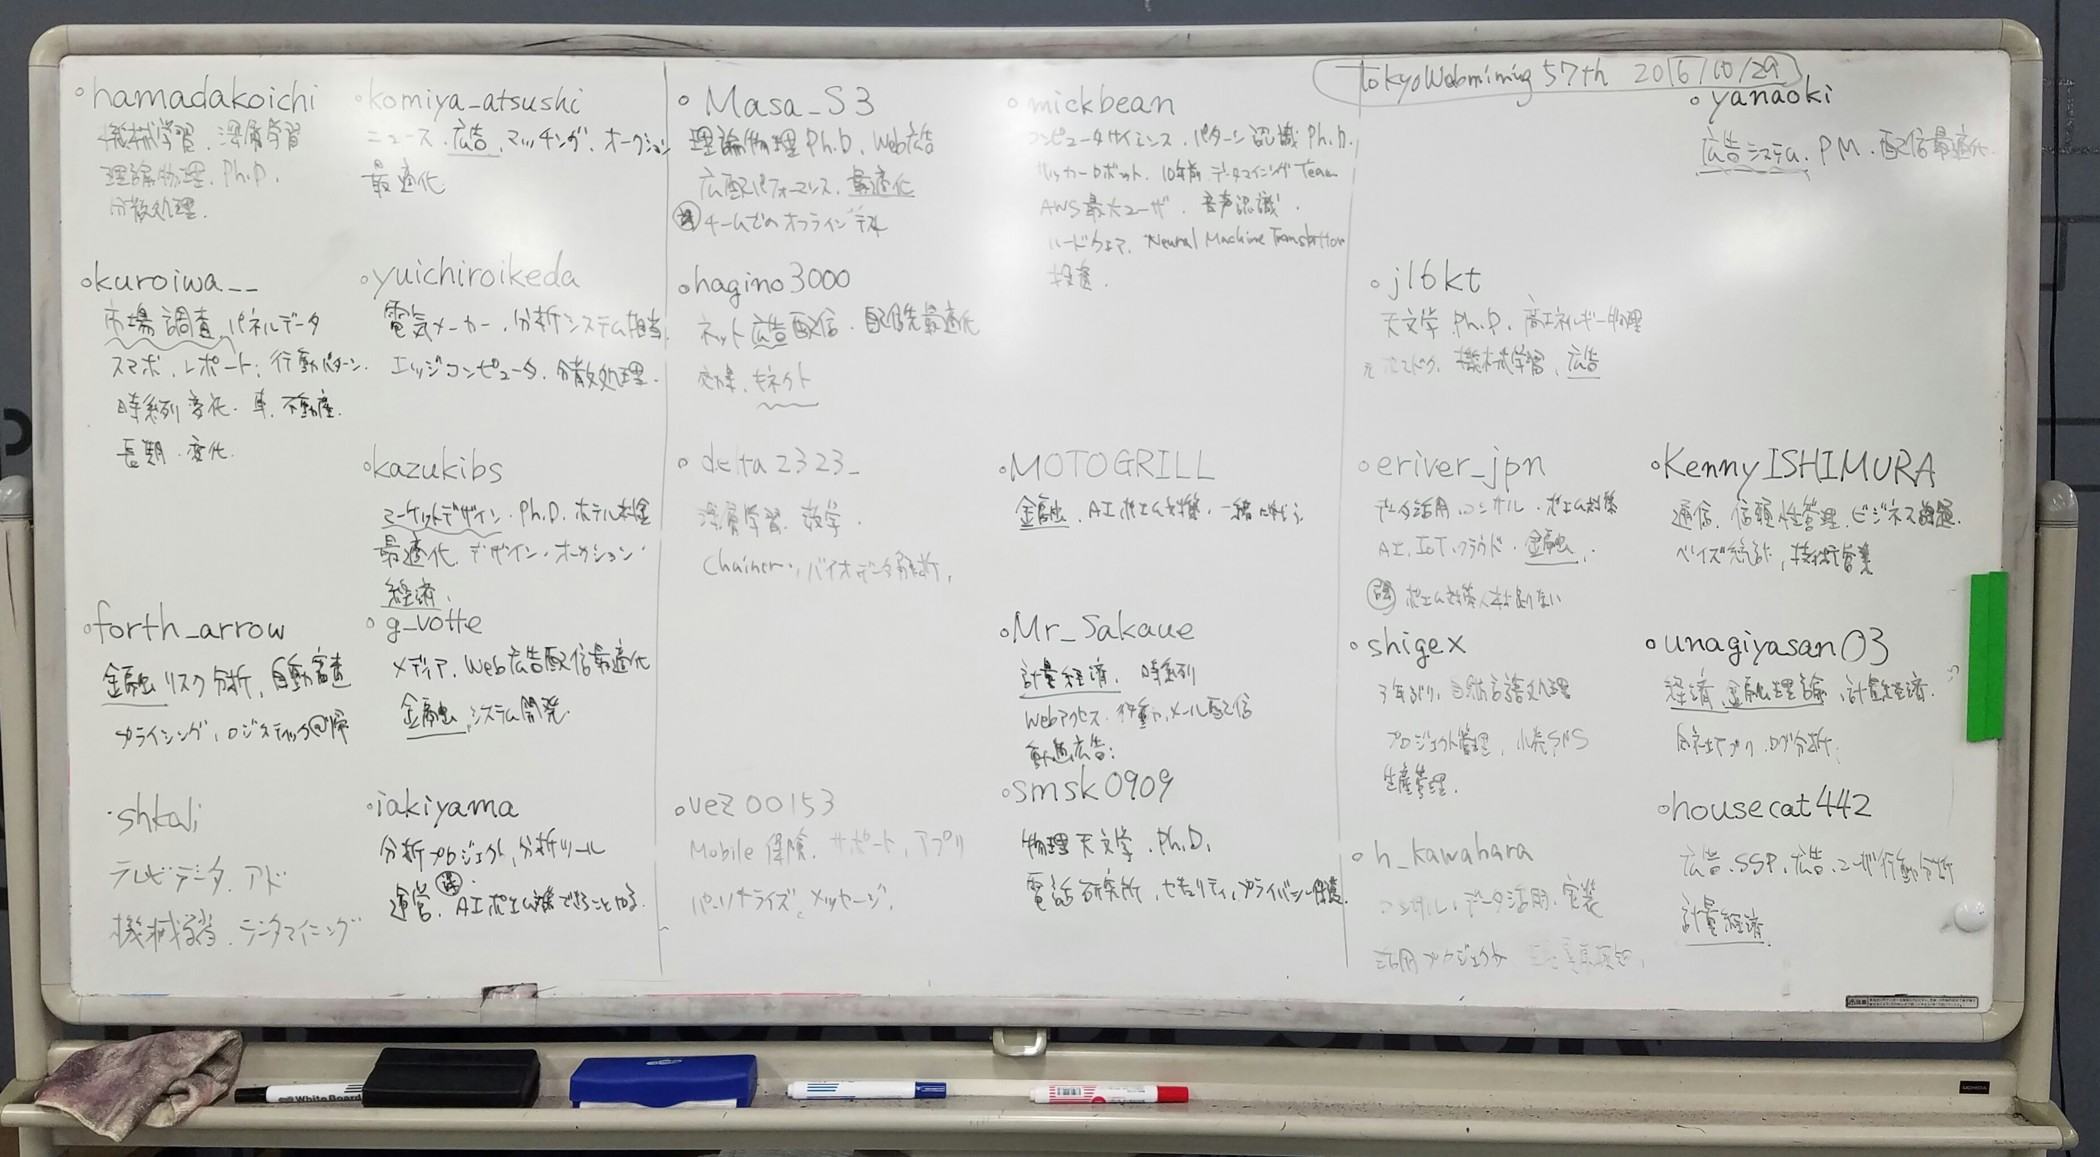 TokyoWebmining 57th 2016/10/29
hamadakoichi
機械学習、深層学習
理論物理、Ph.D.
分散処理.
kuroiwa__
市場調査、パネルデータ
スマホ、レポート、行動パターン.
時系列変化、車、不動産.
長期・変化.
forth_arrow
金融リスク分析、自動審査
プライシング、ロジスティック回帰
shkali
テレビデータ、アド
機械学習、データマイニング
komiya_atsushi
ニュース、広告、マッチング、オークション
最適化
yuichiroikeda
電気メーカー、分析システム担当.
エッジコンピュータ、分散処理.
kazukibs
マーケットデザイン、Ph.D.ホテル料金
最適化、デザイン、オークション
経済.
g_votte
メディア、Web広告配信最適化
金融、システム開発.
iakiyama
分析プロジェクト、分析ツール
運営、AIポエム対策できることやる.
Masa_S3
理論物理Ph.D、Web広告
広配パフォーマンス、最適化
チームでのオフライン
hagino3000
ネット広告配信、配信先最適化
効果、
delta2323_
深層学習、数学.
Chainer、バイオデータ解析.
vez00153
Mobile 保険、サポート、アプリ
パーソナライズ、メッセージ.
mickbean
コンピュータサイエンス、パターン認識 Ph.D.
サッカーロボット、10年前 データマイニングTeam
AWS最大ユーザ、音声認識.
ハードウェア、Neural Machine Translation
MOTOGRILL
金融、AIポエム対策、一緒に
Mr_Sakaue
計量経済、時系列
Webアクセス、行動、メール配信
動画広告.
smsk0909
物理天文学、Ph.D.
電話研究所、セキュリティ、プライバシー保護.
j16kt
天文学 Ph.D、高エネルギー物理
元ポスドク、機械学習、広告
eriver_jpn
データ活用、コンサル、ポエム対策
AI、IoT、クラウド、金融.
ポエム対策人材足りない
shigex
3年ぶり、自然言語処理
プロジェクト管理、小売SNS
生産管理.
h_kawahara
コンサル、データ活用、実装
活用プロジェクト
yanaoki
広告システム、PM、配信最適化
KennyISHIMURA
通信、信頼性管理、ビジネス課題.
ベイズ統計、技術営業
unagiyasan03
経済、金融理論、計量経済.
自社アプリ、ログ分析.
housecat442
広告、SSP、広告、ユーザ行動分析
計量経済
White Board
UCHIDA